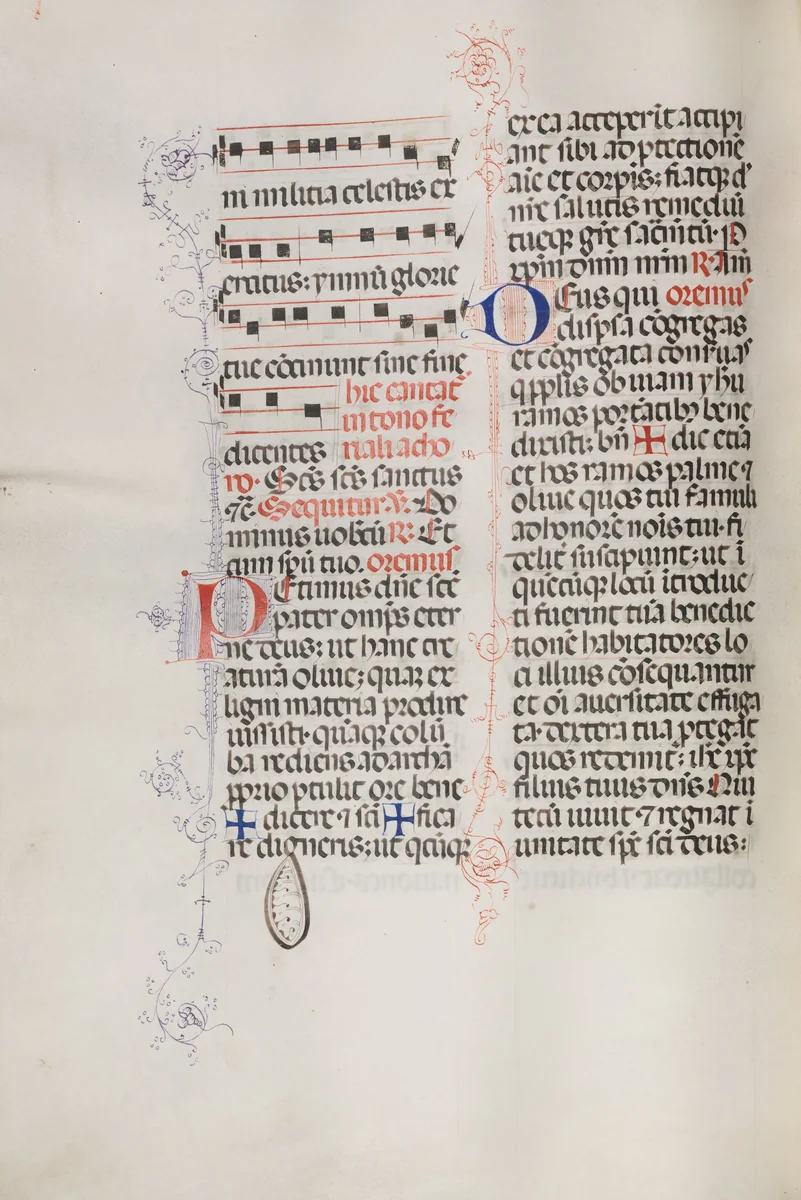 m militia celestis ex
ercitus: ymnū glorie
tue cōcinunt sine fine
hic cantat̄
in tono fe
dicentes riali adho
rō. Sc̄s sc̄s sanctus
⁊c̄. Sequitur V̄. Do
minus uobcū R. Et
cum spū tuo. oremus
Petimus dn̄e sc̄e
pater omps eter
ne deus: ut hanc cre
aturā oliue; quaꝫ ex
ligni materia prodire
iussisti. quāqꝫ colū
ba rediens ad archā
ꝓprio ptulit ore bene
✠ dicere ⁊ sc̄i ✠ fica
re digneris: ut qcūqꝫ
ex ea acceperīt accipi
ant sibi ad ꝓtectionē
aīe et corpis: fiatqꝫ dn̄e
nr̄e salutis remediū
tueqꝫ gr̄e sac̄mtū. P
xpm̄ dnm̄ nrm̄ R. Am̄
Deus qui oremus
dispsa cōgregas
et cōgregata conseruas
q pplis obuiam yh̄u
ramos portātibꝫ bene
dixisti: bn̄ ✠ dic etiā
et hos ramos palme ⁊
oliue quos tui famuli
ad honorē nois tui. fi
delit̄ suscipiunt: ut ī
quēcūqꝫ locū ītroduc
ti fuerint tuā benedic
tionē habitatores lo
ci illius cōsequantur
et oī auersitate effuga
ta. dextera tua ꝓtegāt
quos redemit: ih̄c xp̄c
filius tuus dn̄s. Qui
tecū uiuit ⁊ regnat ī
unitate sp̄c sc̄i deus: